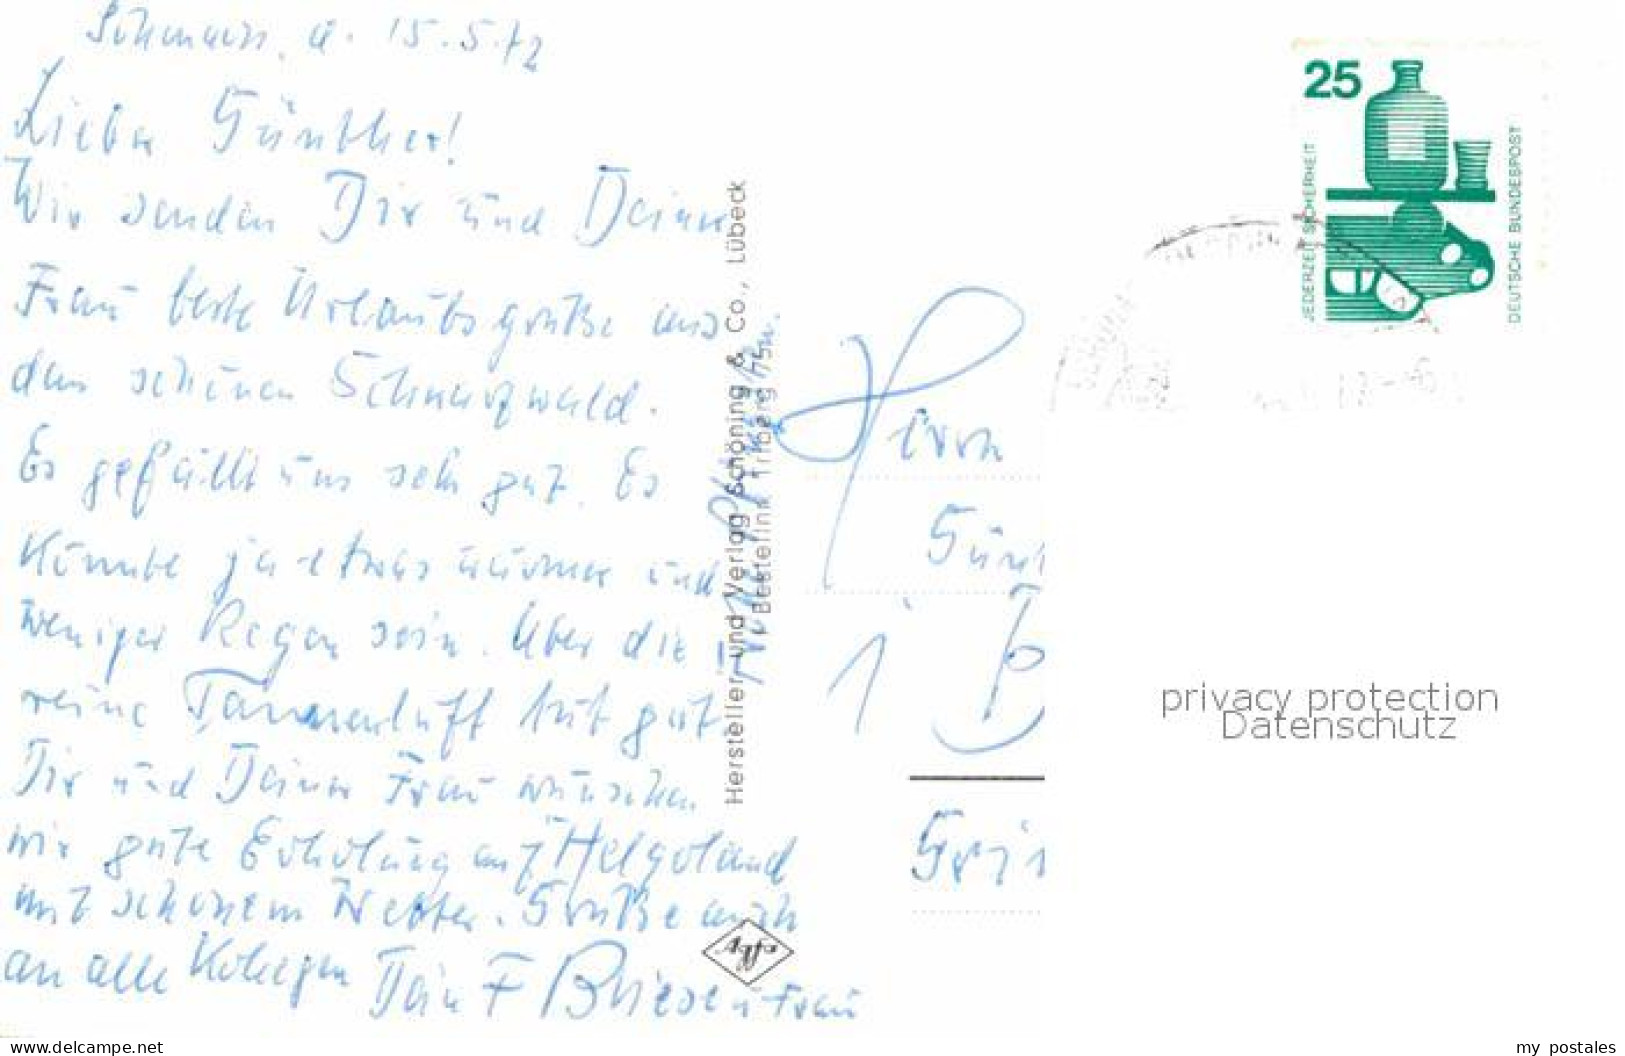 15.5.72
Lieber Günther!
Wir senden Dir und Deiner
Frau beste Urlaubsgrüße aus
dem schönen Schwarzwald.
Es gefällt uns sehr gut. Es
könnte ja etwas wärmer und
weniger Regen sein. Aber die
reine Tannenluft tut gut
Dir und Deiner Frau wünschen
wir gute Erholung auf Helgoland
mit schönem Wetter. Grüße auch
an alle Kollegen Dein F Briese u Frau
Hersteller und Verlag Schöning & Co., Lübeck
Agfa
Herrn
Gün
1 B
25
JEDERZEIT SICHERHEIT
DEUTSCHE BUNDESPOST
privacy protection
Datenschutz
www.delcampe.net
my postales